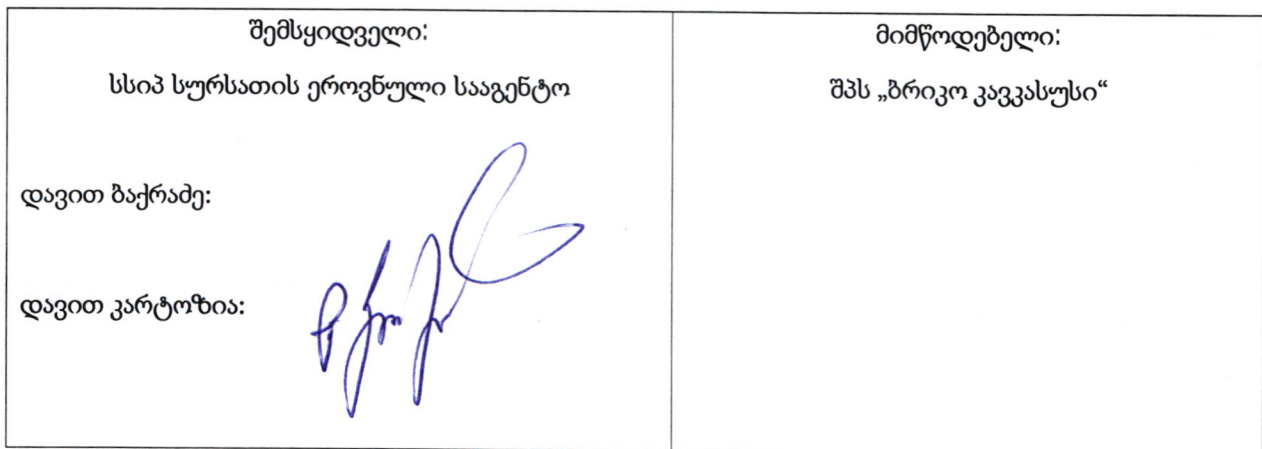 შემსყიდველი:
სსიპ სურსათის ეროვნული სააგენტო
დავით ბაქრაძე:
დავით კარტოზია:
მიმწოდებელი:
შპს „ბრიკო კავკასუსი“